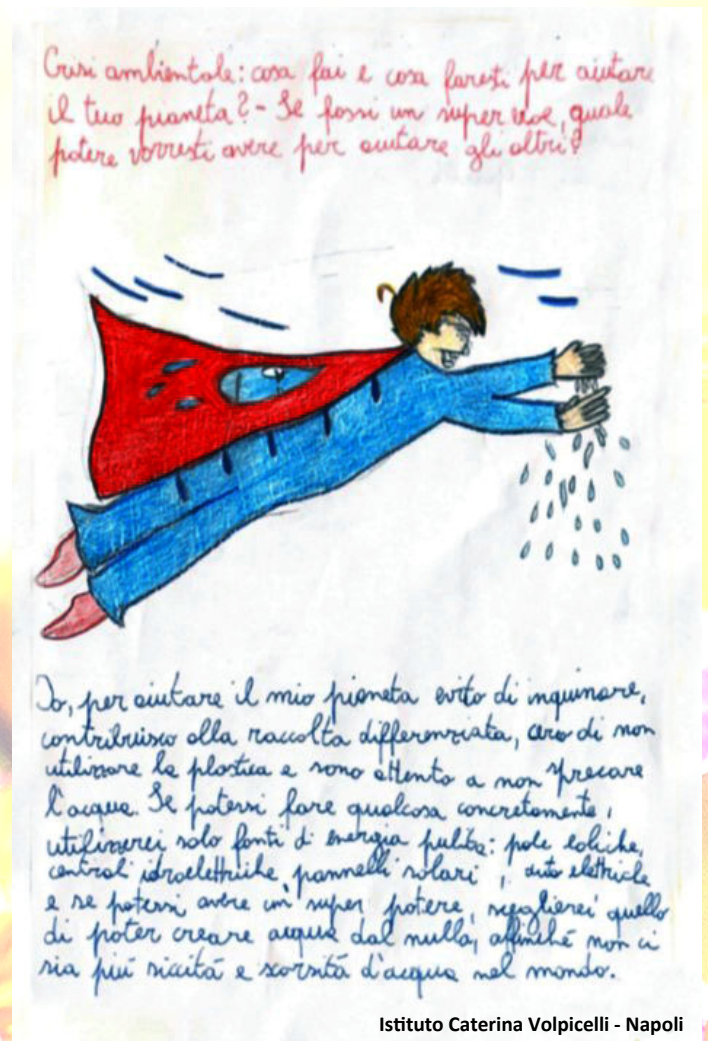 Crisi ambientale: cosa fai e cosa faresti per aiutare
il tuo pianeta? - Se fossi un super eroe, quale
potere vorresti avere per aiutare gli altri?
Io, per aiutare il mio pianeta evito di inquinare,
contribuisco alla raccolta differenziata, cerco di non
utilizzare la plastica e sono attento a non sprecare
l'acqua. Se potessi fare qualcosa concretamente,
utilizzerei solo fonti di energia pulita: pale eoliche,
centrali idroelettriche, pannelli solari, auto elettriche
e se potessi avere un super potere, sceglierei quello
di poter creare acqua dal nulla, affinché non ci
sia più siccità e scarsità d'acqua nel mondo.
Istituto Caterina Volpicelli - Napoli